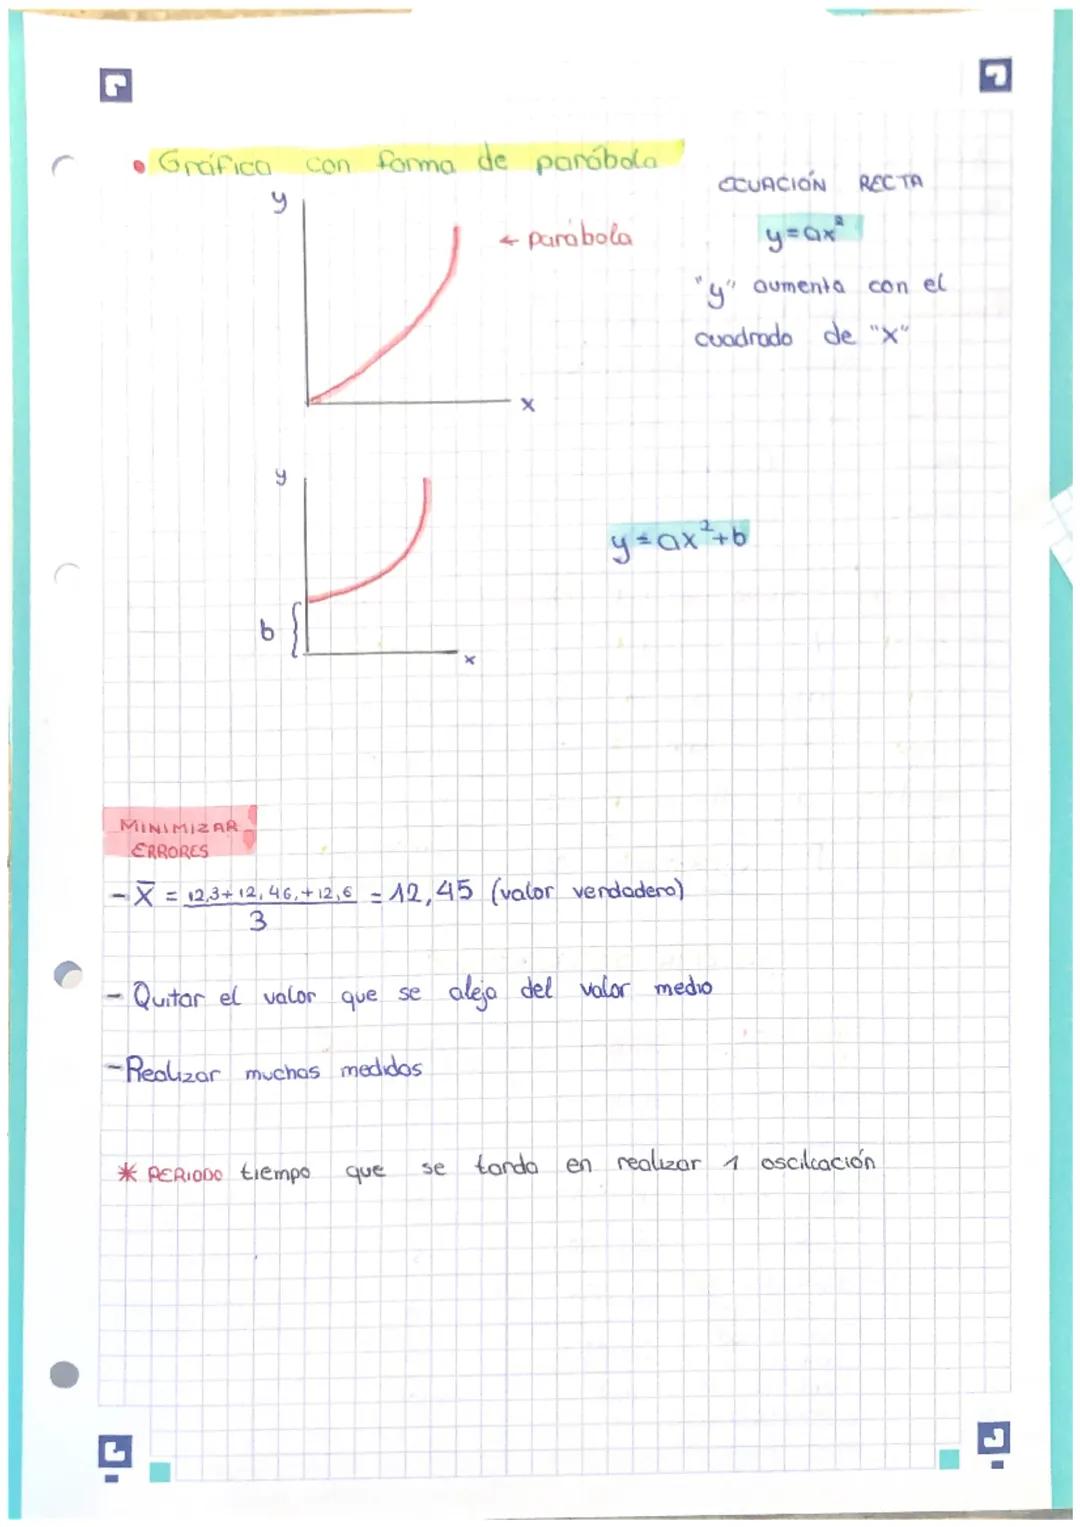 • Gráfica con forma de parábola
y
← parábola
x
ECUACIÓN RECTA
y=ax²
"y" aumenta con el
cuadrado de "x"
y
b
x
y=ax²+b
MINIMIZAR
ERRORES
- X̄ = 12,3+12,46,+12,6 = 12,45 (valor verdadero)
3
- Quitar el valor que se aleja del valor medio
- Realizar muchas medidas
* PERIODO tiempo que se tarda en realizar 1 oscilcación